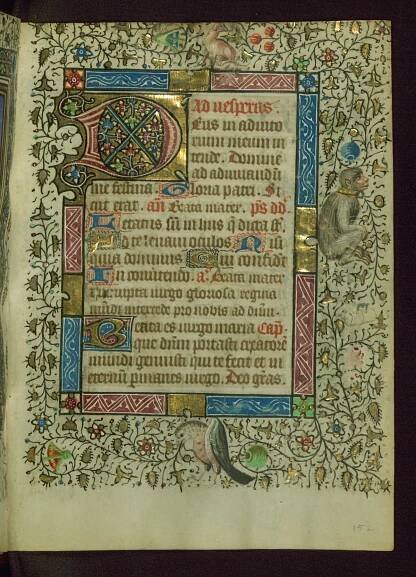 Ad uesperas
Deus in adiuto
rium meum in
tende. Domine
ad adiuuandū
me festina. Gloria patri. Si
cut erat. añ Beata mater. p̄s dd̄.
Letatus sū in hiis q̄ dicta sūt
Ad te leuaui oculos Nisi
quia dominus Qui confidūt
In conuertendo. a. Beata mater
et inrupta uirgo gloriosa regina
mundi intercede pro nobis ad dn̄m.
Beata es uirgo maria Cap̄.
que dn̄m portasti creatorē
mundi genuisti qui te fecit et in
eternū p̄manes uirgo. Deo grās.
152